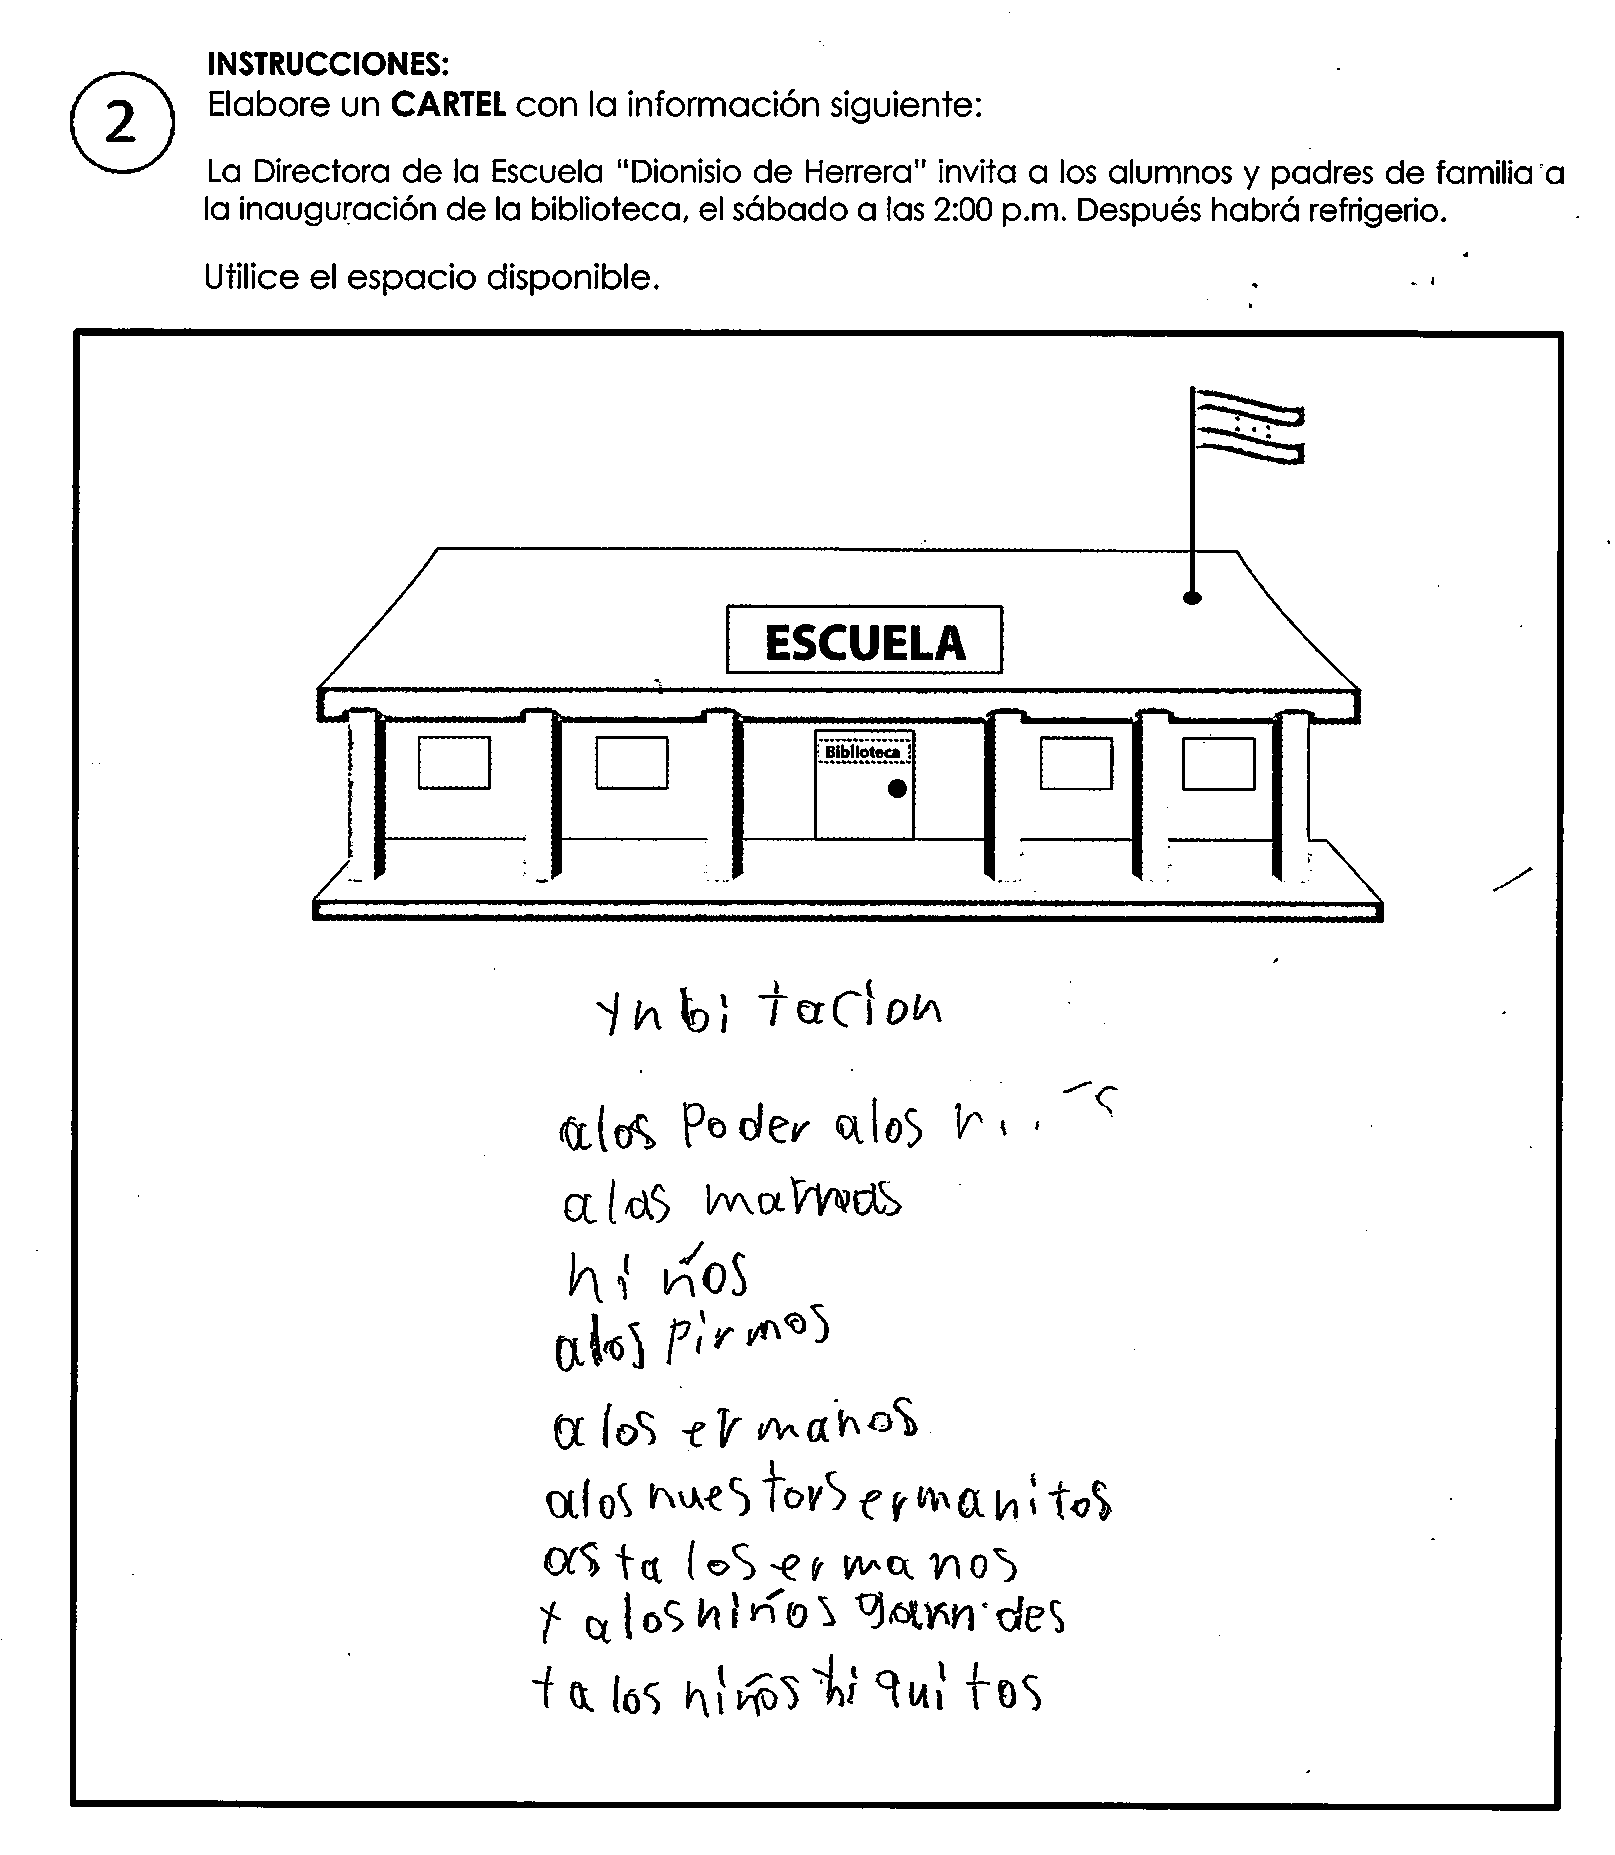 INSTRUCCIONES:
2
Elabore un CARTEL con la información siguiente:
La Directora de la Escuela "Dionisio de Herrera" invita a los alumnos y padres de familia a
la inauguración de la biblioteca, el sábado a las 2:00 p.m. Después habrá refrigerio.
Utilice el espacio disponible.
ESCUELA
Biblioteca
ynbi tacion
alos Poder alos
alas
niños
alos pirmos
alos ermanos
alos nuestors ermanitos
asta los ermanos
y alos niños
ta los niños